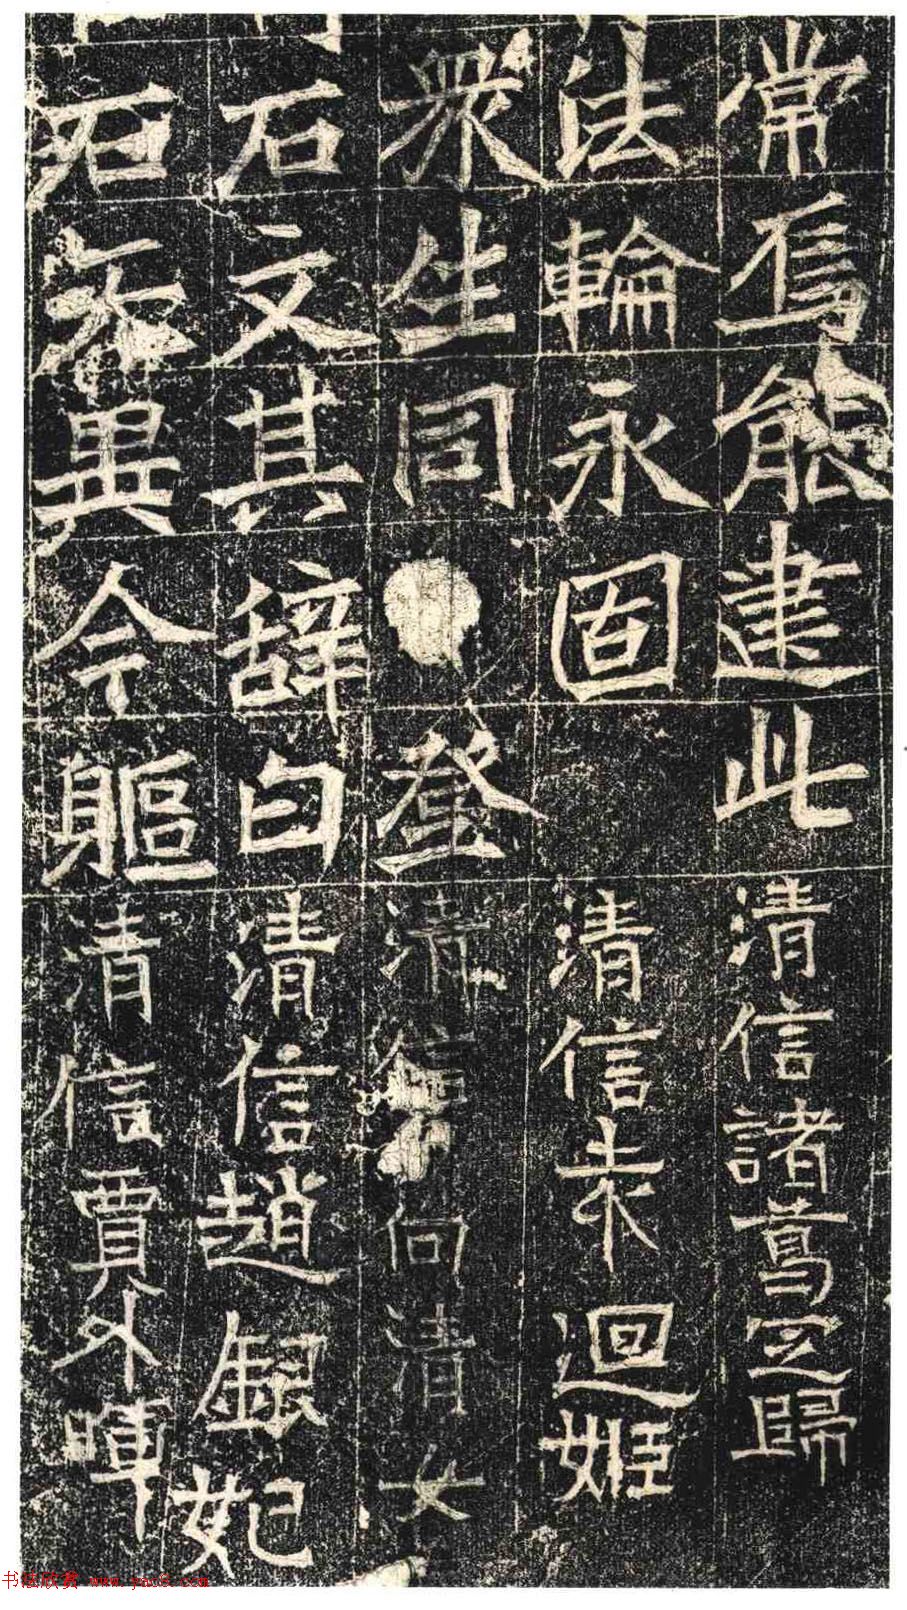 常焉能建此清信諸葛之歸
法輪永固清信朱迴姬
衆生同登清信向清女
石文其辞曰清信趙銀妃
石無異今軀清信賈外暉
书法欣赏 www.yac8.com